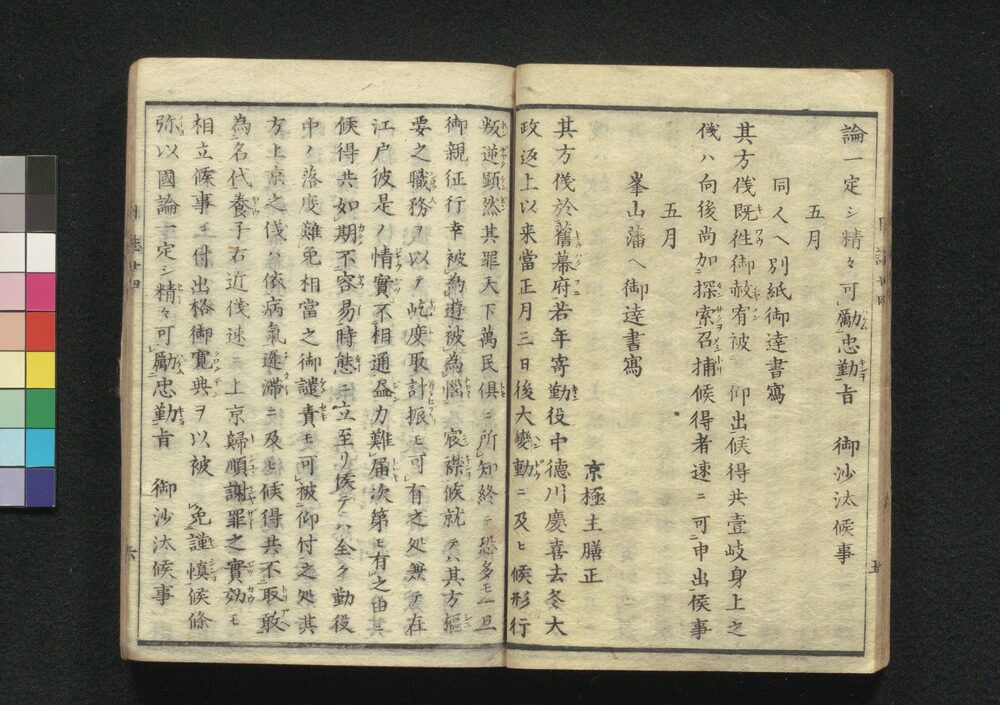 論一定シ精々可励忠勤旨　御沙汰候事
五月
同人ヘ別紙御達書寫
其方儀既往御赦宥被　仰出候得共壹岐身上之
儀ハ向後尚加探索召捕候得者速ニ可申出候事
五月
峯山藩ヘ御達書寫
京極主膳正
其方儀於舊幕府若年寄勤役中徳川慶喜去冬大
政返上以来當正月三日後大變動ニ及ヒ候形行
叛逆顕然其罪天下萬民倶ニ所知終ニ恐多モ一旦
御親征行幸被為遊被為惱　宸襟候就テハ其方樞
要之職務ヲ以テ屹度取計振モ可有之処無テ在
江戸彼是ノ情實不相通盡力難届次第モ有之由其
候得共如期不容易時態ニ立至リ候テハ全ク勤役
中ノ落度難免相當之御譴責モ可被仰付之処其
方上京之儀ハ依病氣遷滞ニ及ヒ候得共不取敢
為名代養子右近儀速ニ上京歸順謝罪之實効モ
相立候事ニ付出格御寛典ヲ以被　免謹慎候條
弥以國論一定シ精々可励忠勤旨　御沙汰候事
五
六